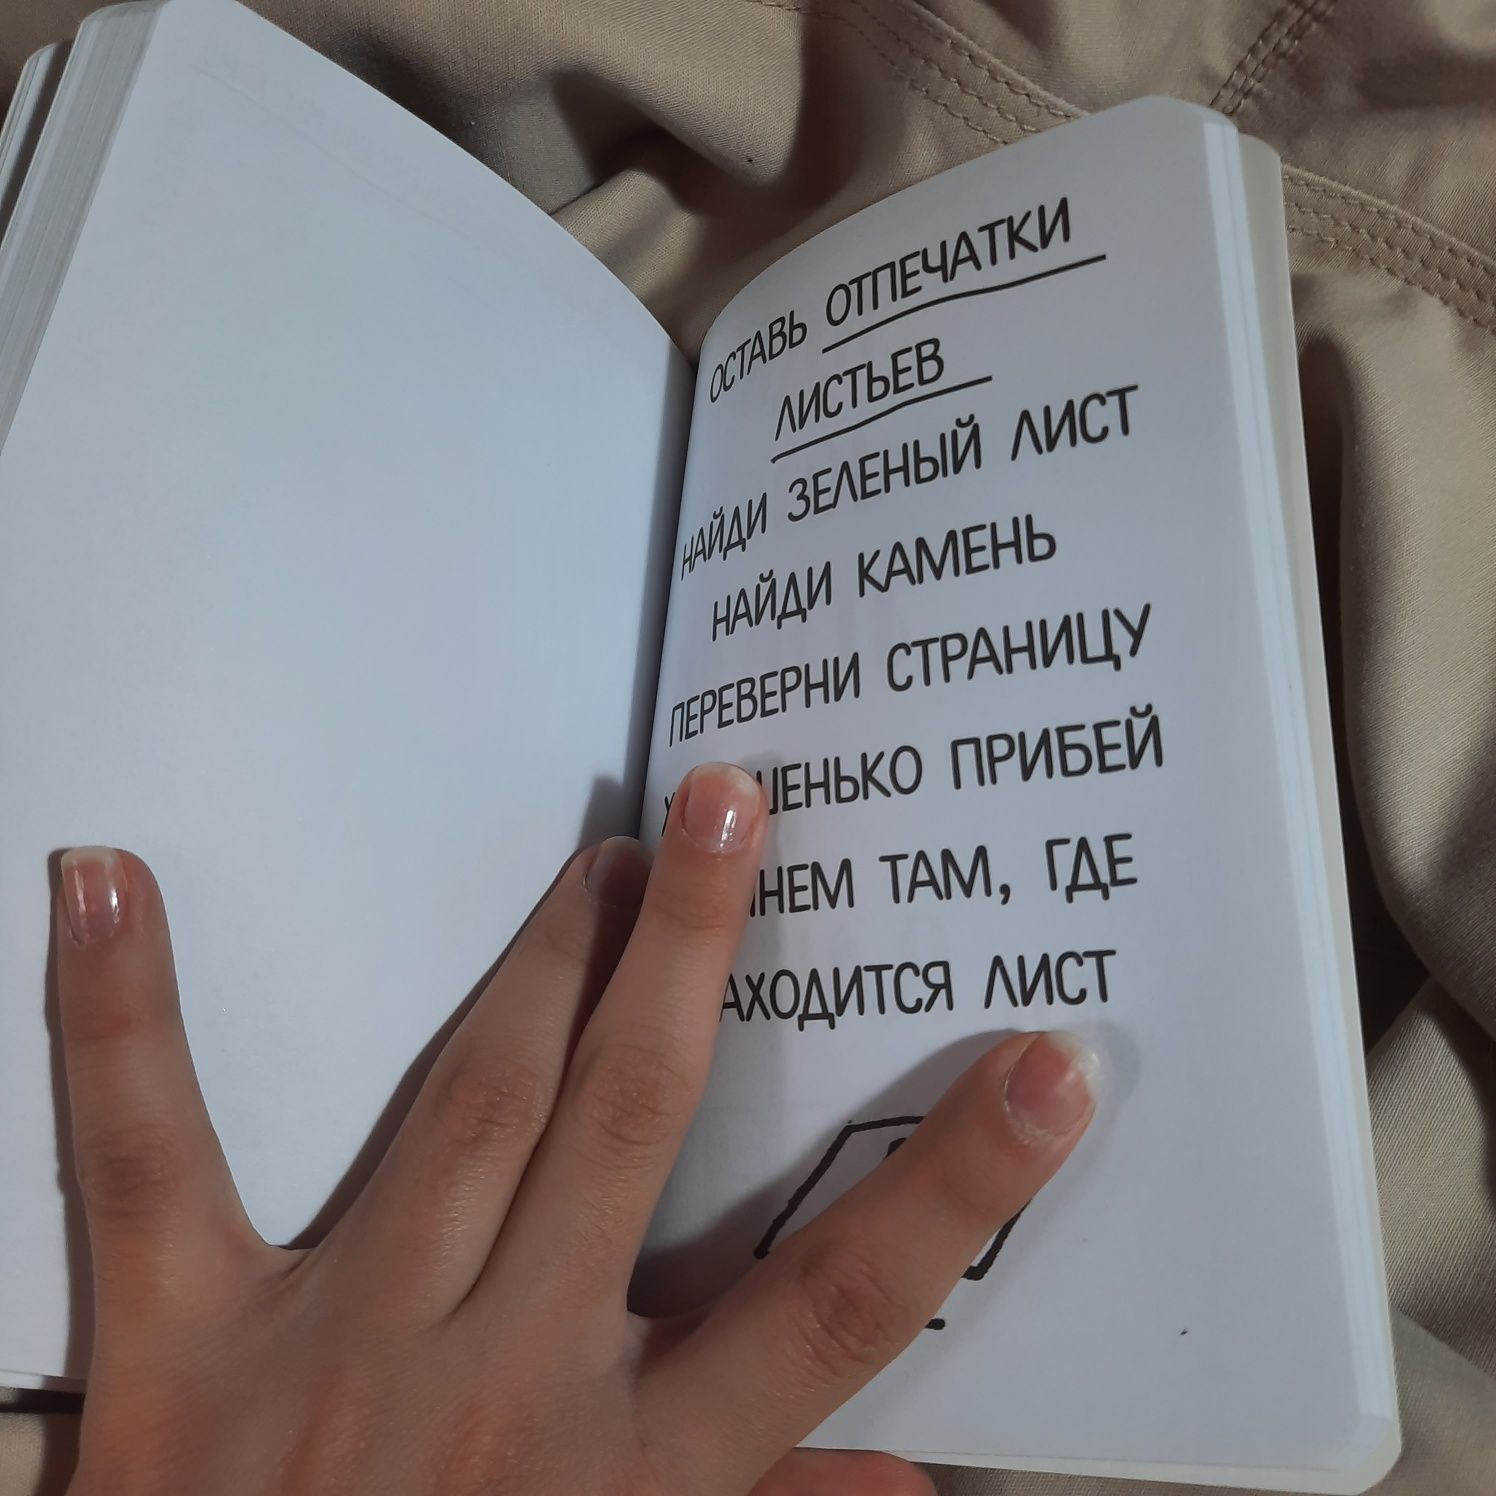 ОСТАВЬ ОТПЕЧАТКИ
ЛИСТЬЕВ
НАЙДИ ЗЕЛЕНЫЙ ЛИСТ
НАЙДИ КАМЕНЬ
ПЕРЕВЕРНИ СТРАНИЦУ
ПРИБЕЙ
ТАМ, ГДЕ
ЛИСТ